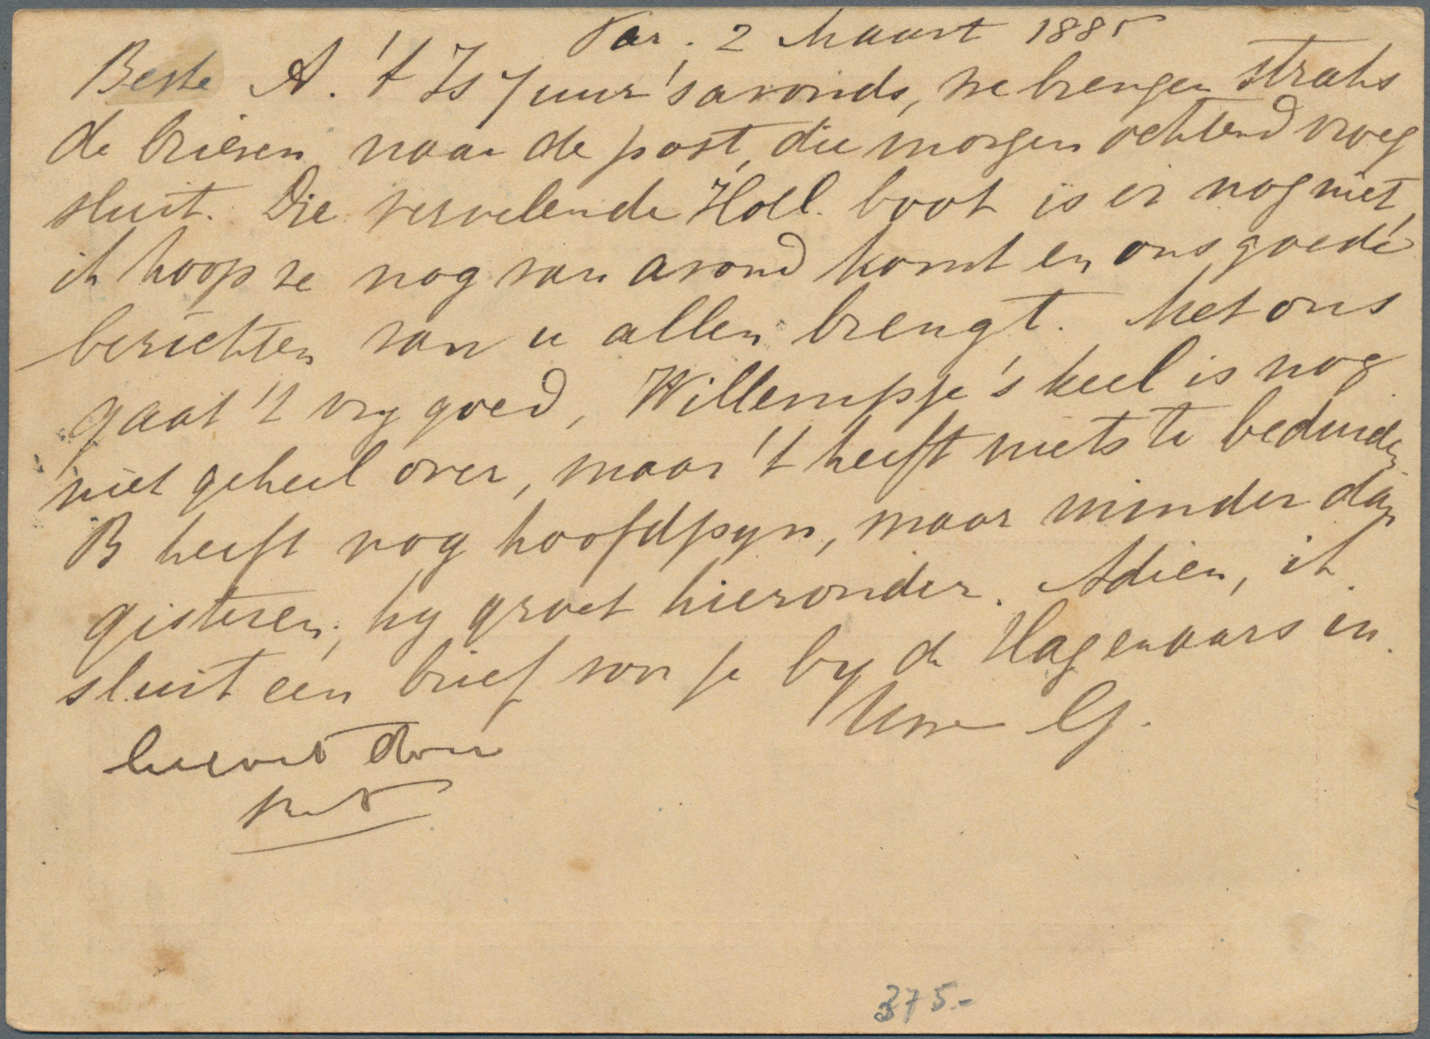 Par. 2 Maart 1885
Beste A. 't Is 7 uur 's avonds, we brengen straks
de brieven naar de post, die morgen ochtend vroeg
sluit. Die vervelende Holl. boot is er nog niet,
ik hoop ze nog van avond komt en ons goede
berichten van u allen brengt. Met ons
gaat 't vry goed, Willempje's keel is nog
niet geheel over, maar 't heeft niets te beduiden.
B heeft nog hoofdpyn, maar minder dan
gisteren, hy groet hieronder. Adieu, ik
sluit een brief voor je by de Hagenaars in.
Uwe G.
door
375.-